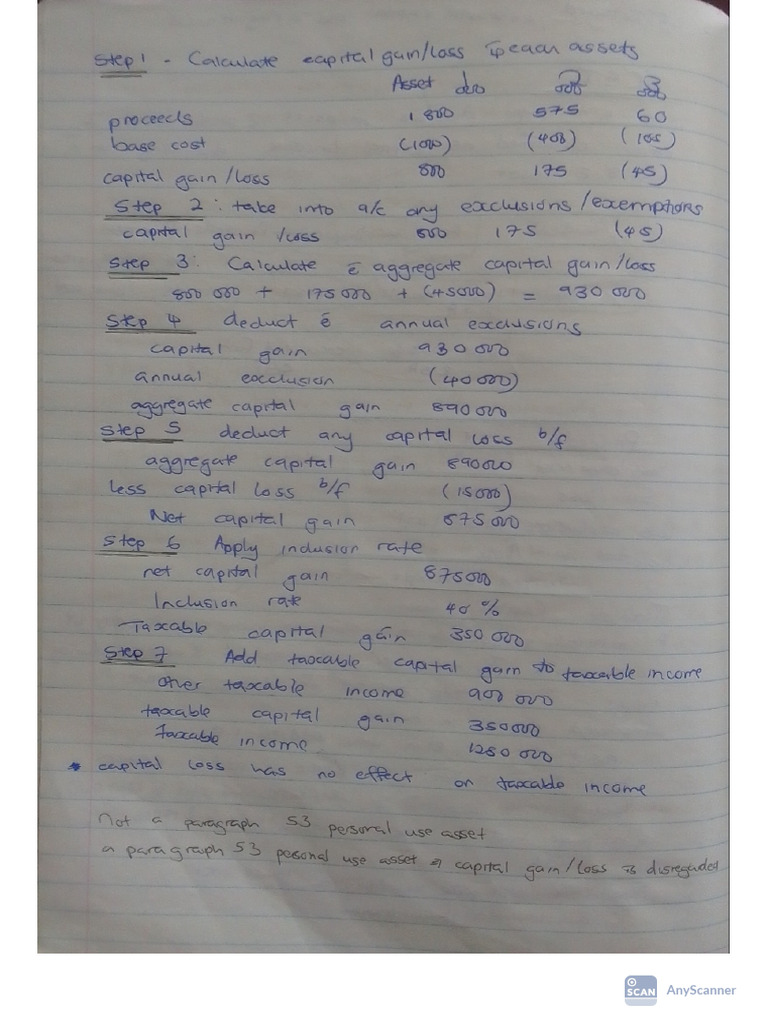 Step 1 - Calculate capital gain/loss assets
Asset
proceeds 1 800 575 60
base cost (1000) (400) (105)
capital gain/loss 800 175 (45)
Step 2: take into a/c any exclusions/exemptions
capital gain /loss 800 175 (45)
Step 3: Calculate ē aggregate capital gain/loss
800 000 + 175 000 + (45000) = 930 000
Step 4 deduct ē annual exclusions
capital gain 930 000
annual exclusion (40 000)
aggregate capital gain 890 000
Step 5 deduct any capital loss b/f
aggregate capital gain 890000
less capital loss b/f (15000)
Net capital gain 875 000
Step 6 Apply inclusion rate
net capital gain 875000
Inclusion rate 40 %
Taxable capital gain 350 000
Step 7 Add taxable capital gain to taxable income
other taxable income 900 000
taxable capital gain 350000
taxable income 1250 000
* capital loss has no effect on taxable income
Not a paragraph 53 personal use asset
a paragraph 53 pesonal use asset capital gain/loss is disregaded
SCAN AnyScanner